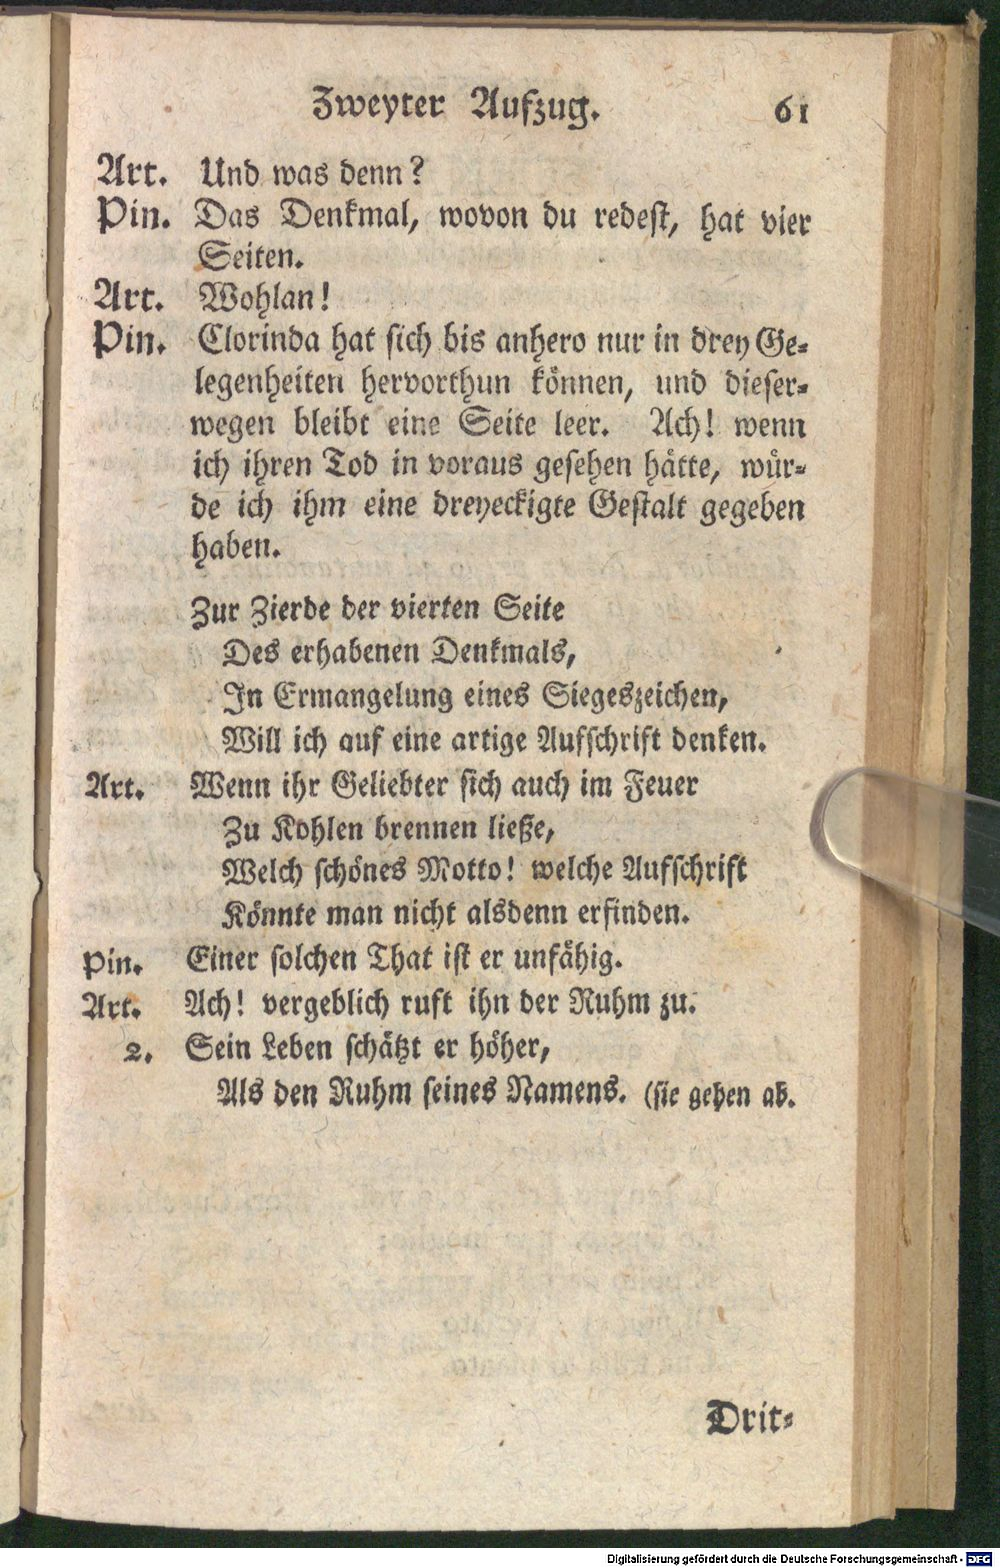 Zweyter Aufzug. 61
Art. Und was denn?
Pin. Das Denkmal, wovon du redest, hat vier
Seiten.
Art. Wohlan!
Pin. Clorinda hat sich bis anhero nur in drey Ge-
legenheiten hervorthun können, und dieser-
wegen bleibt eine Seite leer. Ach! wenn
ich ihren Tod in voraus gesehen hätte, wür-
de ich ihm eine dreyeckigte Gestalt gegeben
haben.
Zur Zierde der vierten Seite
Des erhabenen Denkmals,
In Ermangelung eines Siegeszeichen,
Will ich auf eine artige Aufschrift denken.
Art. Wenn ihr Geliebter sich auch im Feuer
Zu Kohlen brennen ließe,
Welch schönes Motto! welche Aufschrift
Könnte man nicht alsdenn erfinden.
Pin. Einer solchen That ist er unfähig.
Art. Ach! vergeblich ruft ihn der Ruhm zu.
2. Sein Leben schätzt er höher,
Als den Ruhm seines Namens. (sie gehen ab.
Drit-
Digitalisierung gefördert durch die Deutsche Forschungsgemeinschaft - DFG